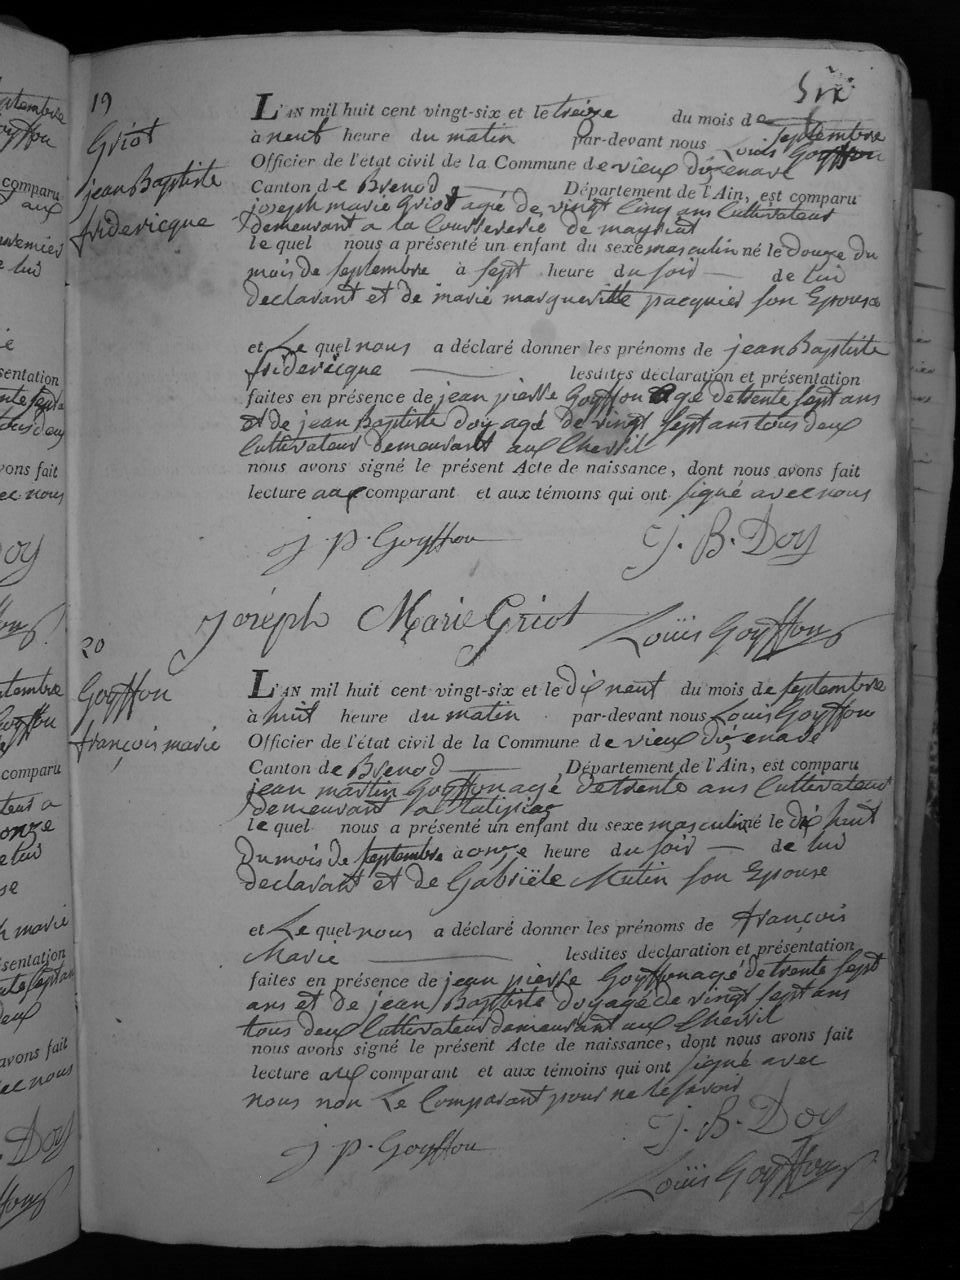 Six
19
Griot
jean Baptiste
fridericque
L'AN mil huit cent vingt-six et le treize du mois de septembre
à neuf heure du matin par-devant nous Louis Goyffon
Officier de l'état civil de la Commune de vieux d'izenave
Canton de Brenod Département de l'Ain, est comparu
joseph marie Griot agé de vingt cinq ans Cultivateur
demeurant a la Couvreserie de
le quel nous a présenté un enfant du sexe masculin né le douze du
mois de septembre à sept heure du soir de lui
declarant et de marie margueritte pacquier son Epouse
et Le quel nous a déclaré donner les prénoms de jean Baptiste
fridericque lesdites déclaration et présentation
faites en présence de jean pierre Goyffon agé de trente sept ans
et de jean Baptiste doy agé de vingt sept ans tous deux
Cultivateur demeurant aux Cherril
nous avons signé le présent Acte de naissance, dont nous avons fait
lecture aux comparant et aux témoins qui ont signé avec nous
j. p. Goyffon J. B. Doy
joseph Marie Griot Louis Goyffon
20
Goyffon
françois marie
L'AN mil huit cent vingt-six et le dix neuf du mois de septembre
à huit heure du matin par-devant nous Louis Goyffon
Officier de l'état civil de la Commune de vieux d'izenave
Canton de Brenod Département de l'Ain, est comparu
jean martin Goyffon agé de trente ans Cultivateur
demeurant a
le quel nous a présenté un enfant du sexe masculin né le dix huit
du mois de septembre à onze heure du soir de lui
declarant et de Gabrièle Mutin son Epouse
et Le quel nous a déclaré donner les prénoms de françois
Marie lesdites declaration et présentation
faites en présence de jean pierre Goyffon agé de trente sept
ans et de jean Baptiste doy agé de vingt sept ans
tous deux Cultivateur demeurant aux Cherril
nous avons signé le présent Acte de naissance, dont nous avons fait
lecture aux comparant et aux témoins qui ont signé avec
nous non Le Comparant pour ne le savoir
j. p. Goyffon J. B. Doy
Louis Goyffon